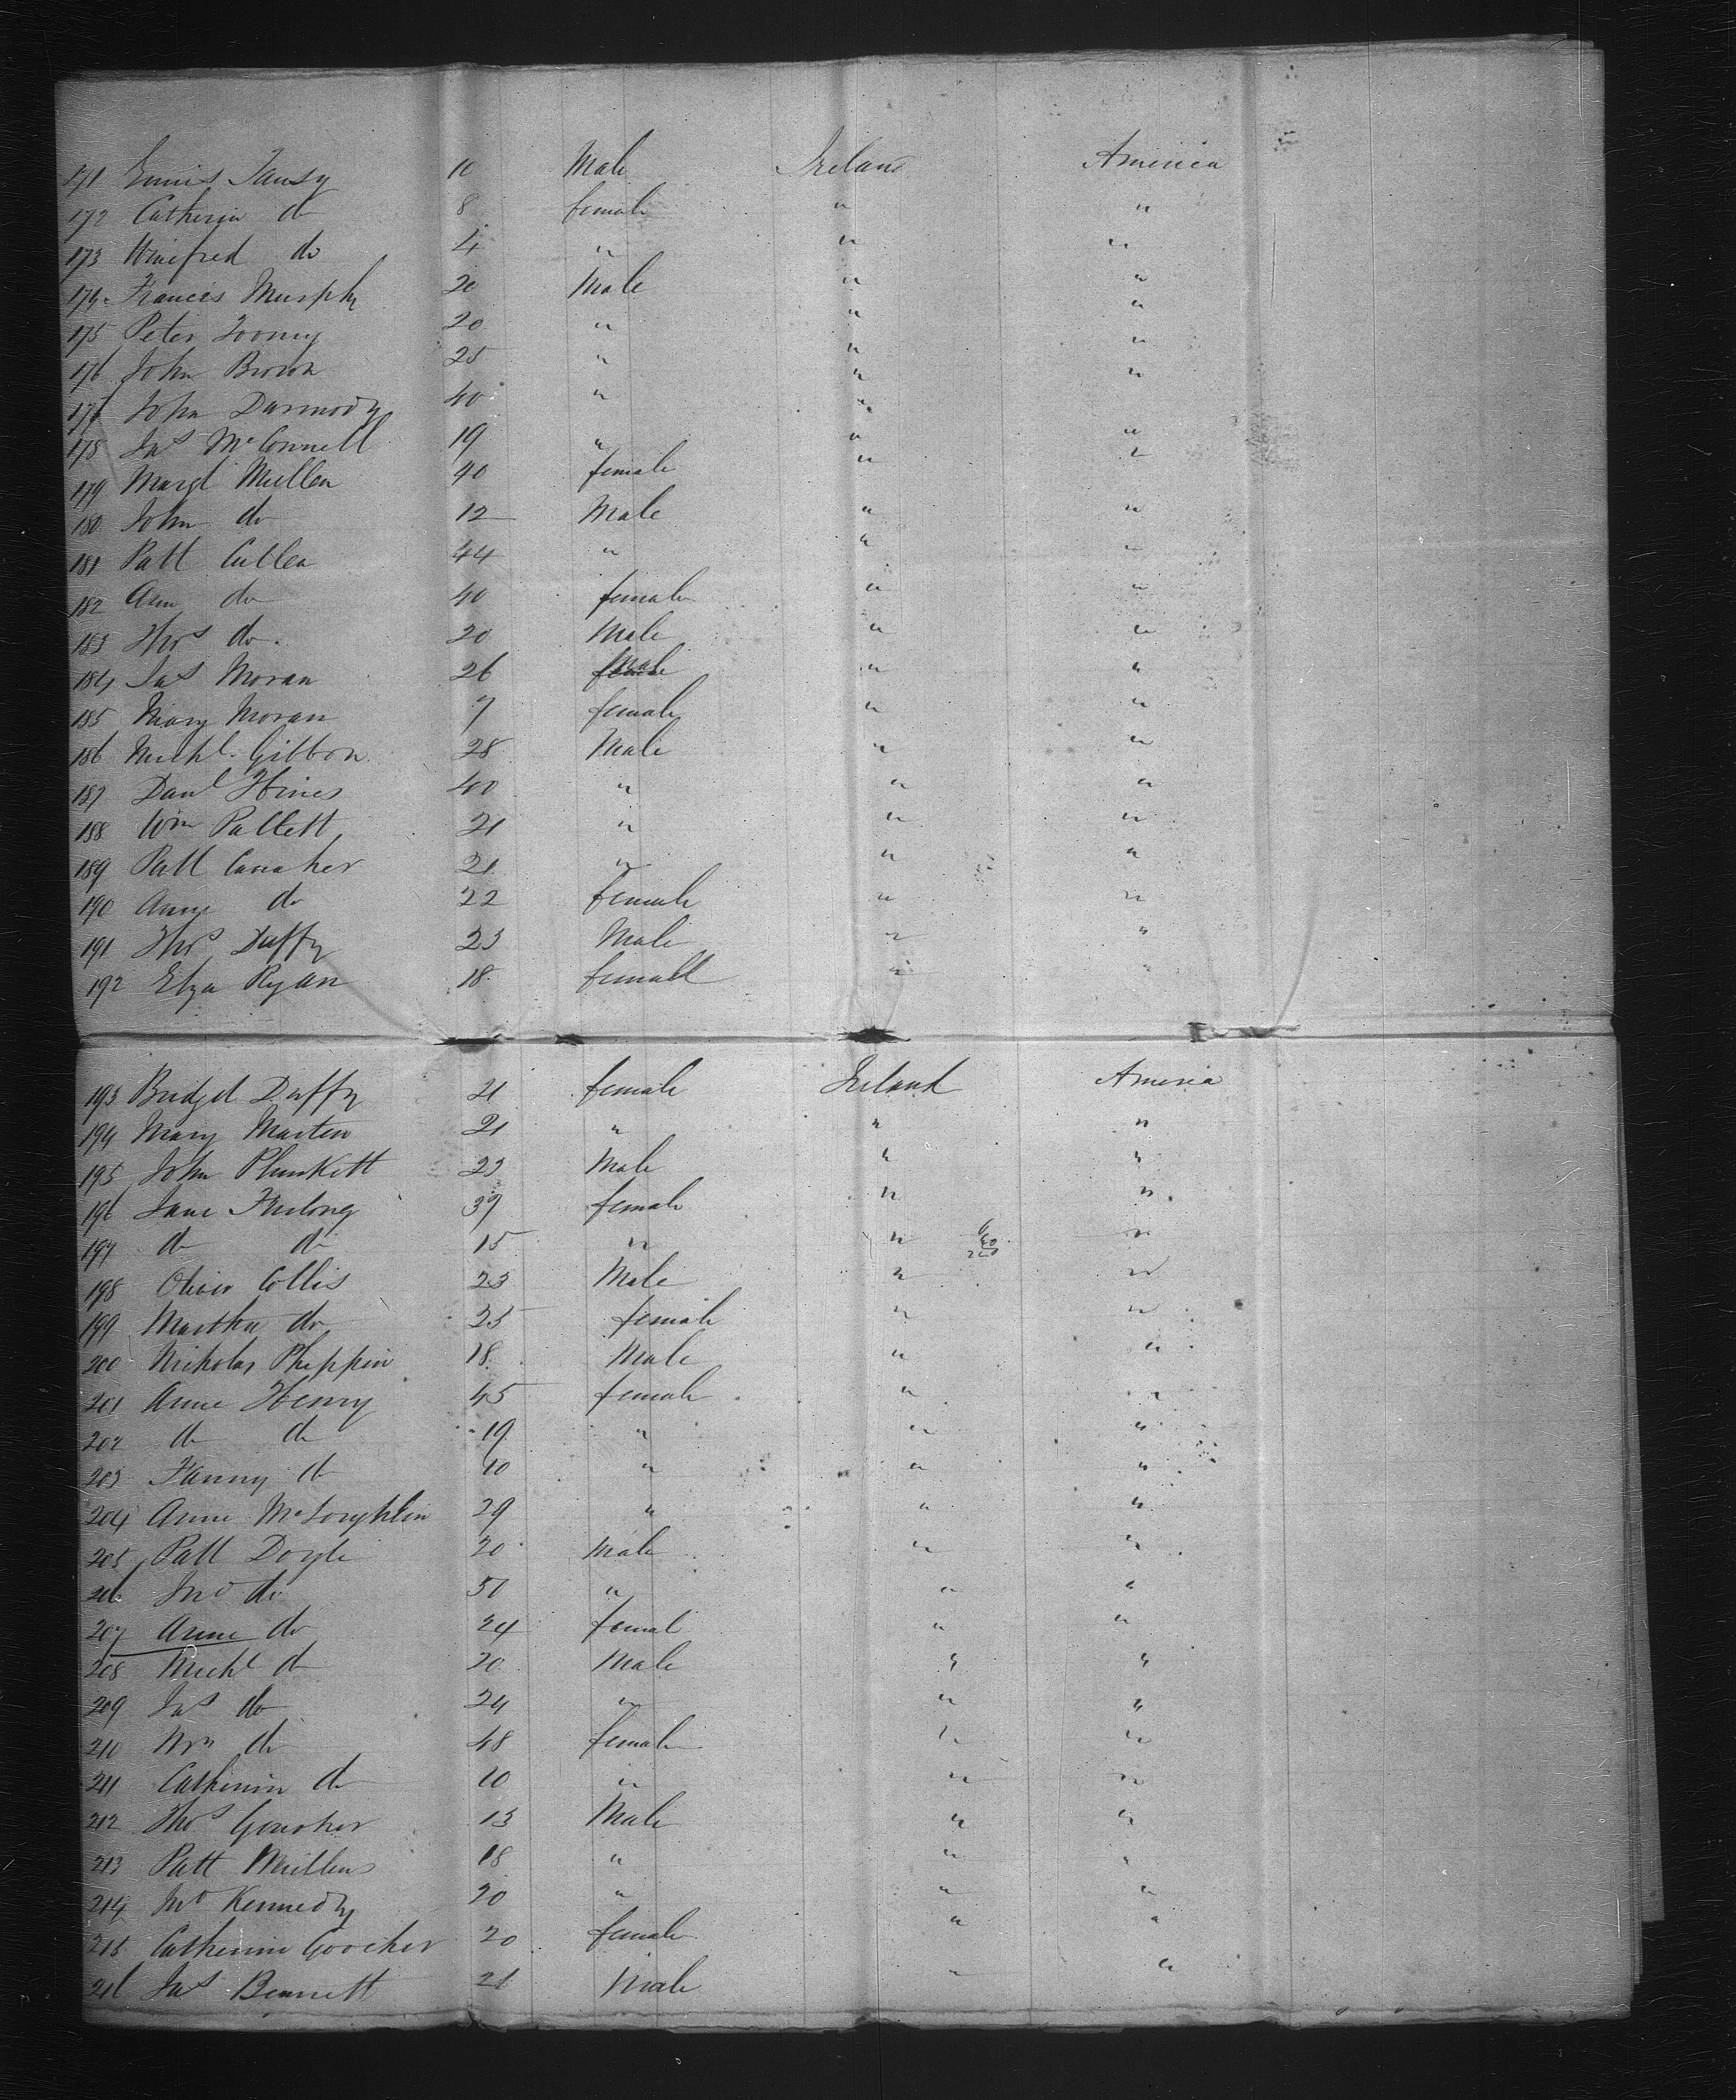 171 Ennis Tansy 10 Male Ireland America
172 Catherin do 8 female " "
173 Winefred do 4 " " "
174 Frances Murphy 20 Male " "
175 Peter Toomy 20 " " "
176 John Brown 25 " " "
177 John Darmody 40 " " "
178 Jas McConnell 19 " " "
179 Margt Mullen 40 female " "
180 John do 12 Male " "
181 Patt Cullen 44 " " "
182 Ann do 40 female " "
183 Thos do 20 Male " "
184 Jas Moran 26 Male " "
185 Mary Moran 7 female " "
186 Michl. Gibbon 28 Male " "
187 Danl Hines 40 " " "
188 Wm Pallett 21 " " "
189 Patt Canaher 21 " " "
190 Anne do 22 female " "
191 Thos Duffy 23 Male " "
192 Elza Ryan 18 female " "
193 Bridget Duffy 21 female Ireland America
194 Mary Martin 21 " " "
195 John Plunkett 23 Male " "
196 Jane Furlong 39 female " "
197 do do 15 " " "
198 Oliver Collis 23 Male " "
199 Martha do 25 female " "
200 Nicholas Pheppin 18 Male " "
201 Anne Henry 45 female " "
202 do do 19 " " "
203 Fanny do 10 " " "
204 Anne McLoughlin 29 " " "
205 Patt Doyle 20 Male " "
206 Jno do 50 " " "
207 Anne do 24 femal " "
208 Michl do 20 Male " "
209 Jas do 24 " " "
210 Mrs do 48 female " "
211 Catherine do 10 " " "
212 Thos Goucher 13 Male " "
213 Patt Mullens 18 " " "
214 Jno Kennedy 20 " " "
215 Catherine Goocher 20 female " "
216 Jas Bennett 21 Male " "